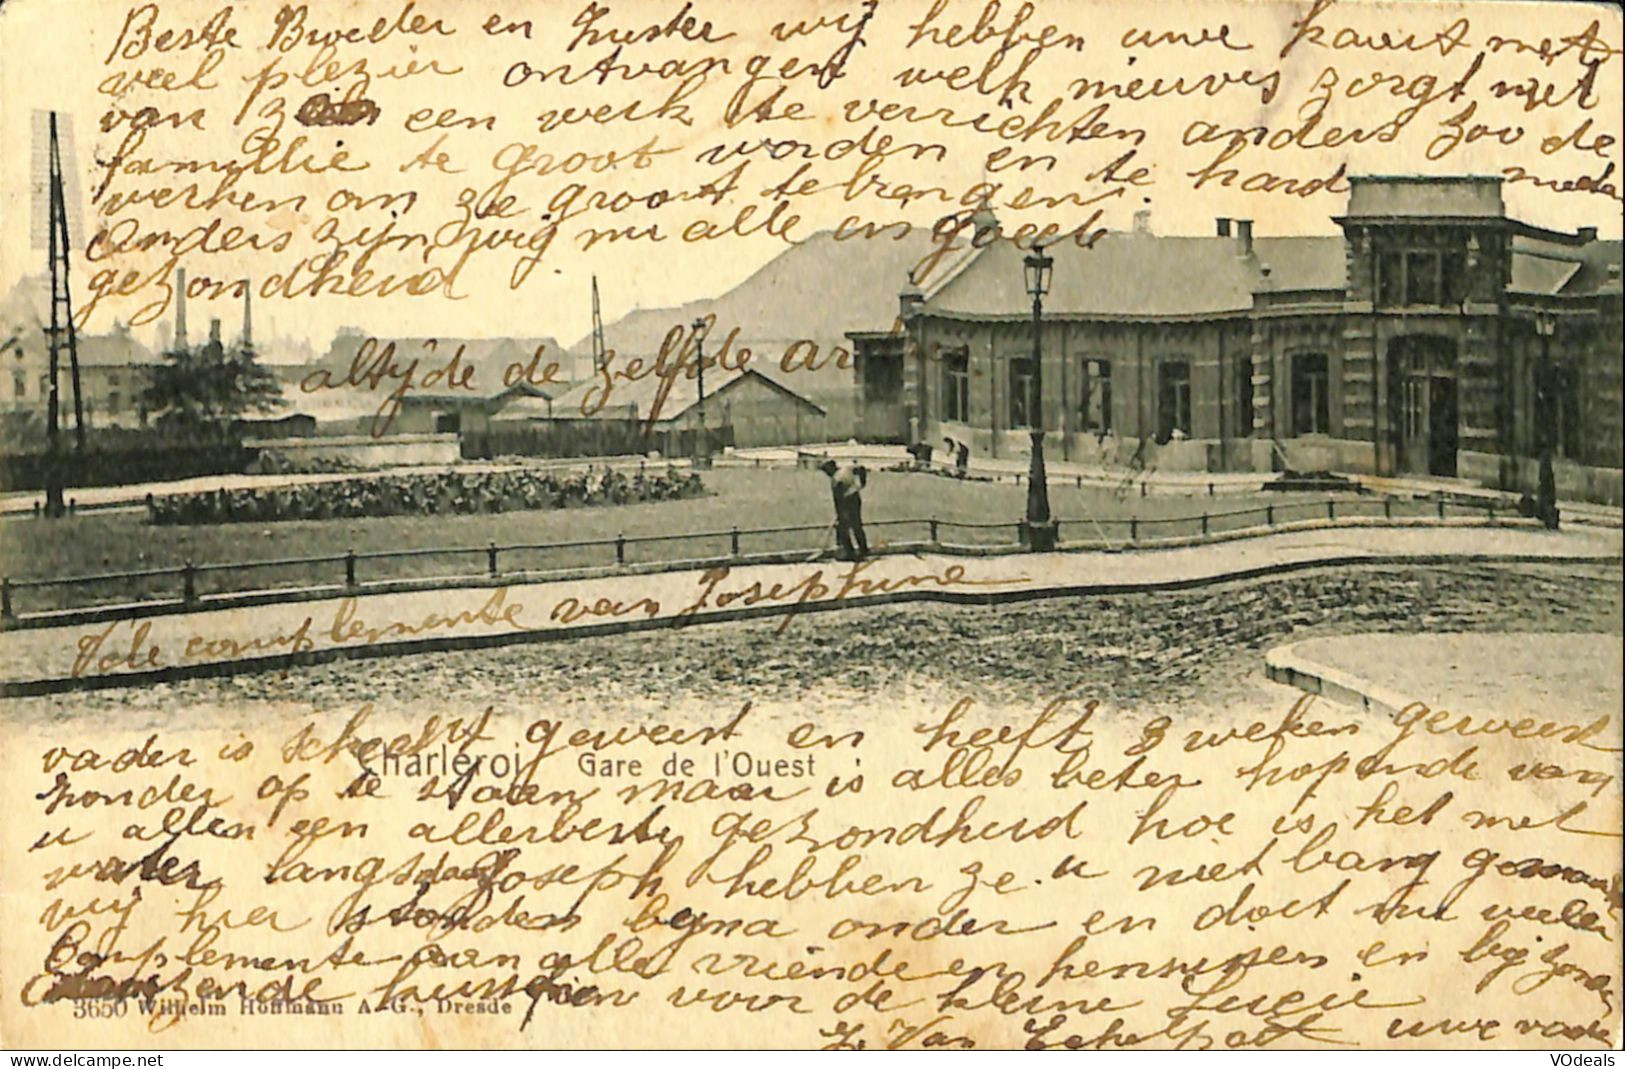 Beste Broeder en Zuster wij hebben uwe kaart met
veel plezier ontvangen welk nieuws zorgt niet
van een werk te verrichten anders zoo de
famillie te groot worden en te hard
werken om ze groot te brengen
Anders zijn wij nu alle in goede
gezondheid
altyde de zelfde
de complemente van Josephine
vader is scheelt geweest en heeft 3 weken geweest
zonder op te staan maar is alles beter hopende van
u allen een allerbeste gezondheid hoe is het met
water langs Joseph hebben ze u niet bang
wij hier bijna onder en doet nu veele
Complemente aan alle vriende en kensissen en bijzon
kussen voor de kleine Lucie
Van Echelpoel uwe vader
Charleroi Gare de l'Ouest
3650 Wilhelm Hoffmann A.-G., Dresde
VOdeals